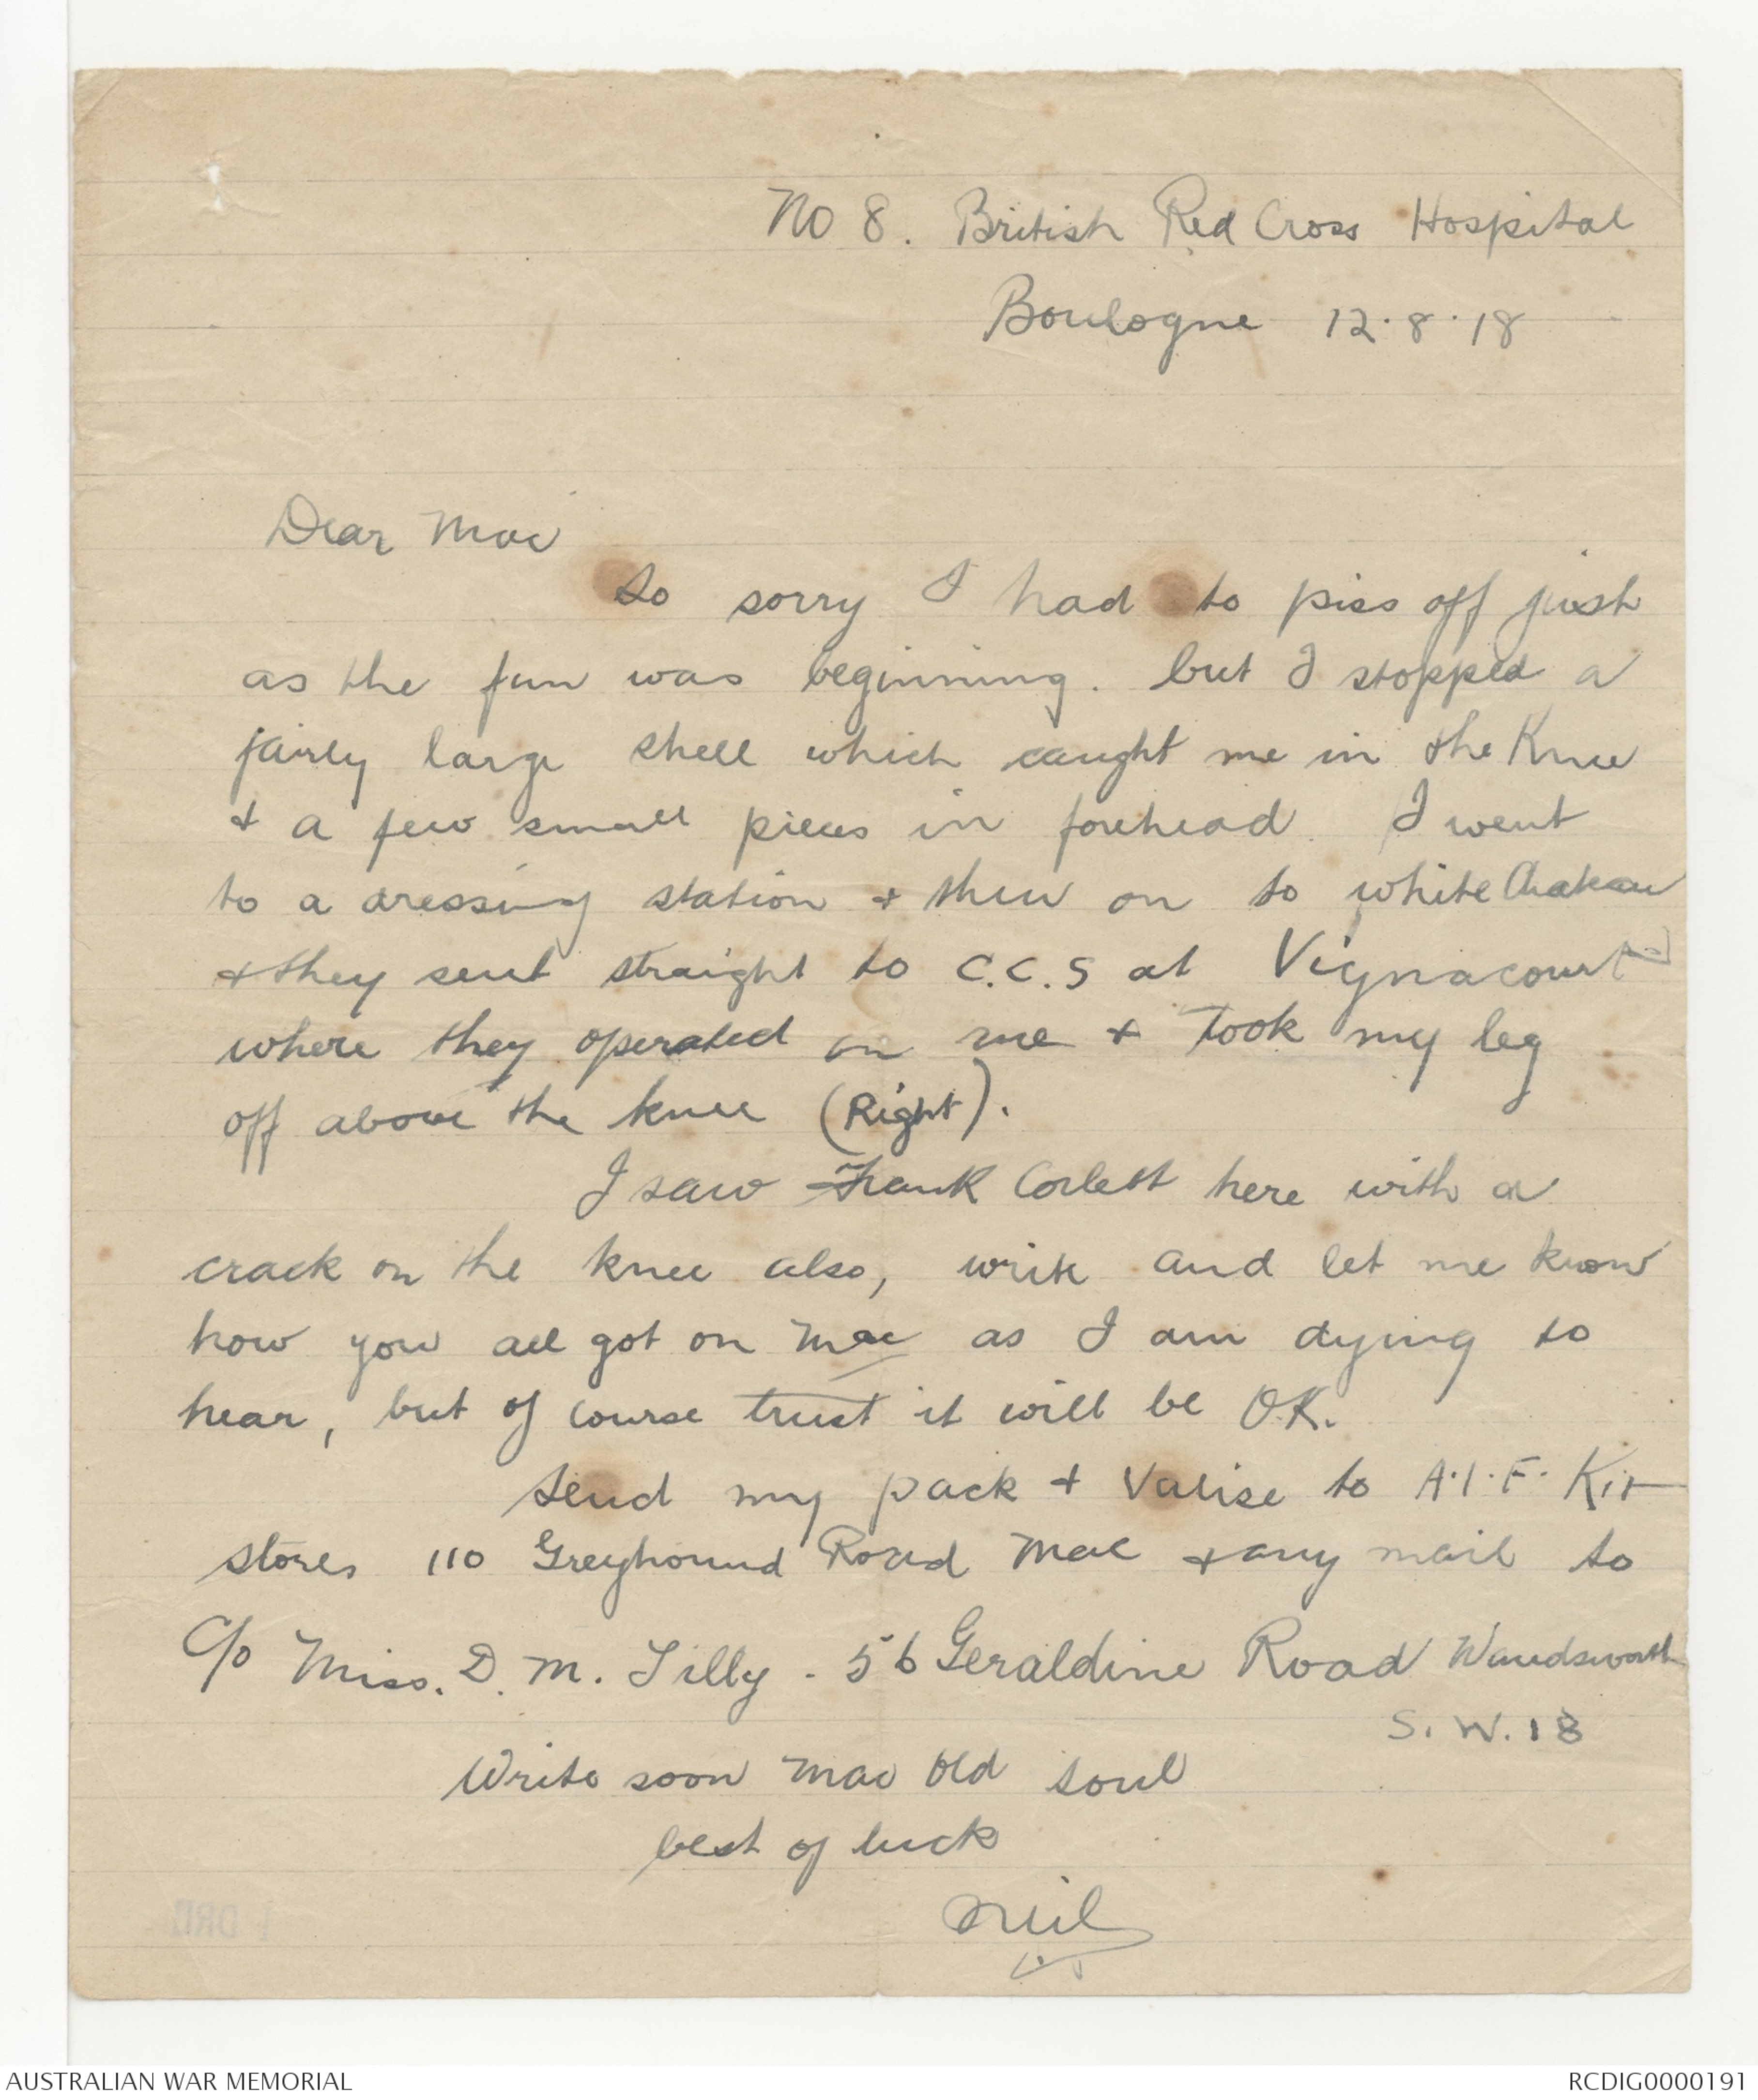 No 8. British Red Cross Hospital
Boulogne 12.8.18
Dear Mac
So sorry I had to piss off just
as the fun was beginning. but I stopped a
fairly large shell which caught me in the Knee
& a few small pieces in forehead. I went
to a dressing station & then on to white Chateau
& they sent straight to C.C.S at Vignacourt
where they operated on me & took my leg
off above the knee (Right).
I saw Frank Corlett here with a
crack on the knee also, write and let me know
how you all got on Mac as I am dying to
hear, but of course trust it will be O.K.
Send my pack & Valise to A.I.F. Kit
stores 110 Greyhound Road Mac & any mail to
C/o Miss. D. M. Tilly - 56 Geraldine Road Wandsworth
S.W.18
Write soon Mac old soul
best of luck
Neil
AUSTRALIAN WAR MEMORIAL
RCDIG0000191